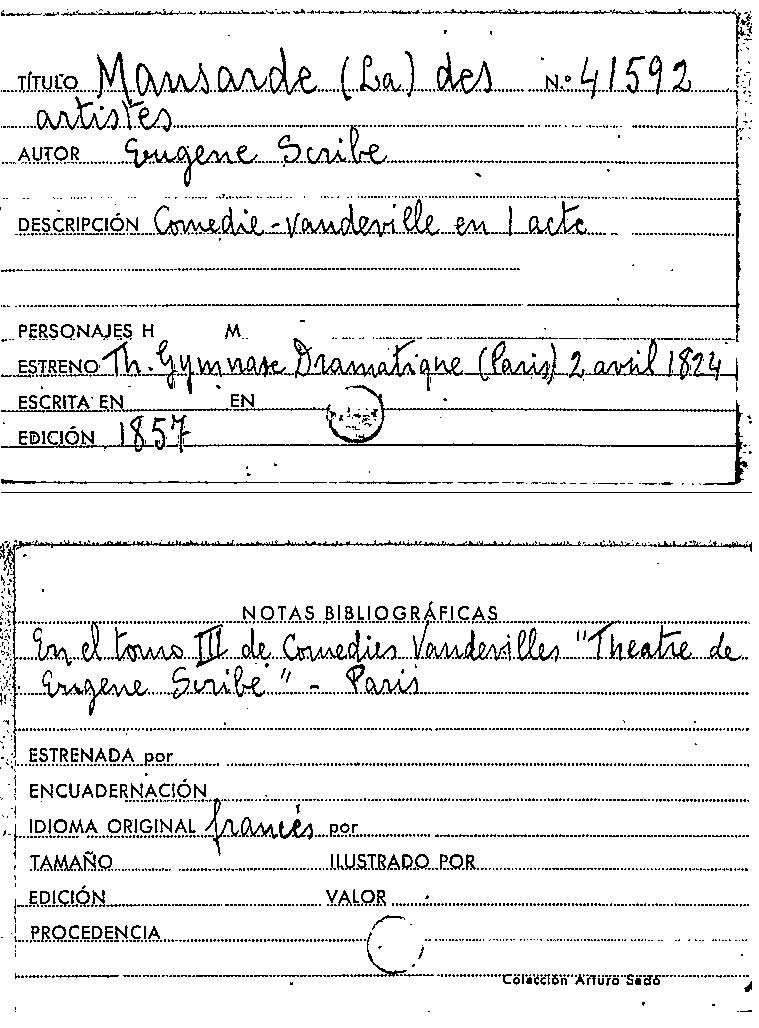 TÍTULO Mansarde (La) des N.º 41592
artistes
AUTOR Eugene Scribe
DESCRIPCIÓN Comedie-Vaudeville en 1 acte
PERSONAJES H M
ESTRENO Th. Gymnase Dramatique (Paris) 2 avril 1824
ESCRITA EN EN
EDICIÓN 1857
NOTAS BIBLIOGRÁFICAS
En el tomo III de Comedies Vaudevilles "Theatre de
Eugene Scribe" - Paris
ESTRENADA por
ENCUADERNACIÓN
IDIOMA ORIGINAL francés por
TAMAÑO ILUSTRADO POR
EDICIÓN VALOR
PROCEDENCIA
Colección Arturo Sedó